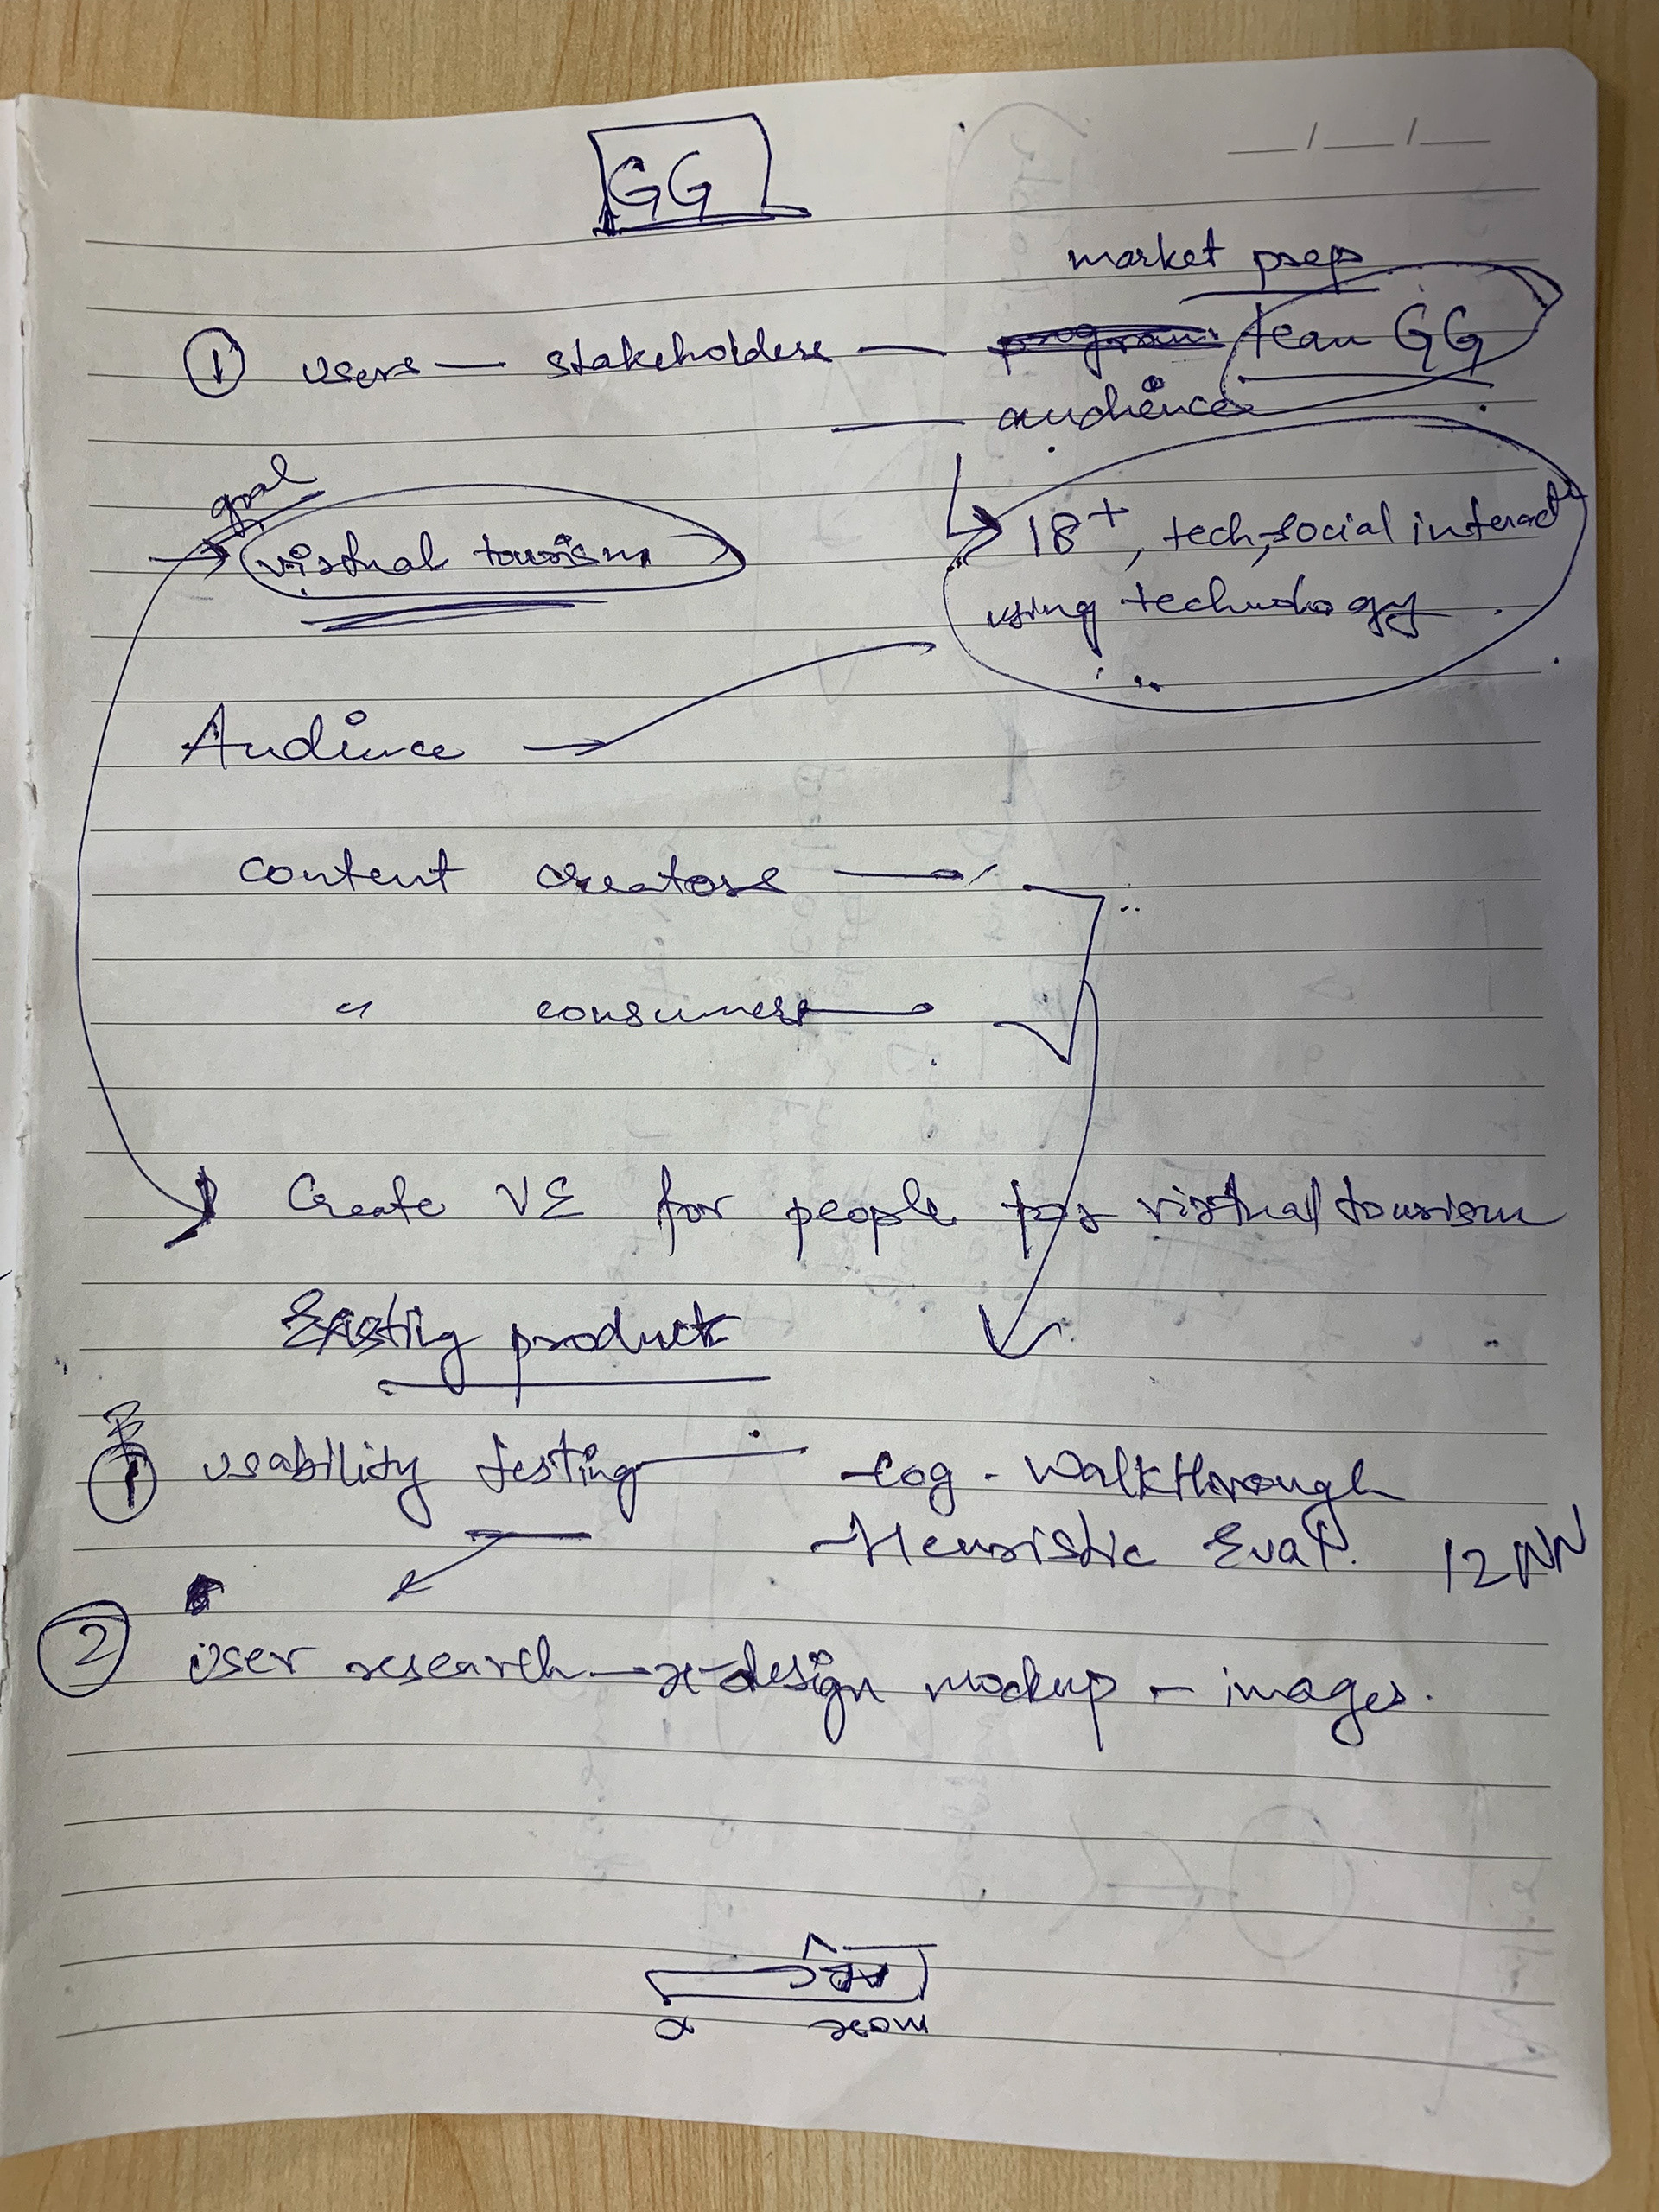 GG
market prep
① users — stakeholders — team GG
— audience
goal
→ virtual tourism
18+, tech, social interact
using technology
Audience →
content creators —
" consumers —
Create VE for people for virtual tourism
Existing product
① usability testing — - Cog. Walkthrough
- Heuristic Eval.
12 NN
② User research — design mockup - images.